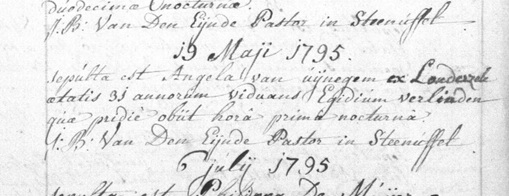 duodecimæ nocturnæ
J: B: Van Den Eijnde Pastor in Steenuffel
19 Maji 1795.
sepulta est Angela van uijnegem ex Londerzele
ætatis 31 annorum viduans Egidium verlinden
quæ pridie obiit hora prima nocturna
J: B: Van Den Eijnde Pastor in Steenuffel
6 julÿ 1795
sepultus est De Meijer